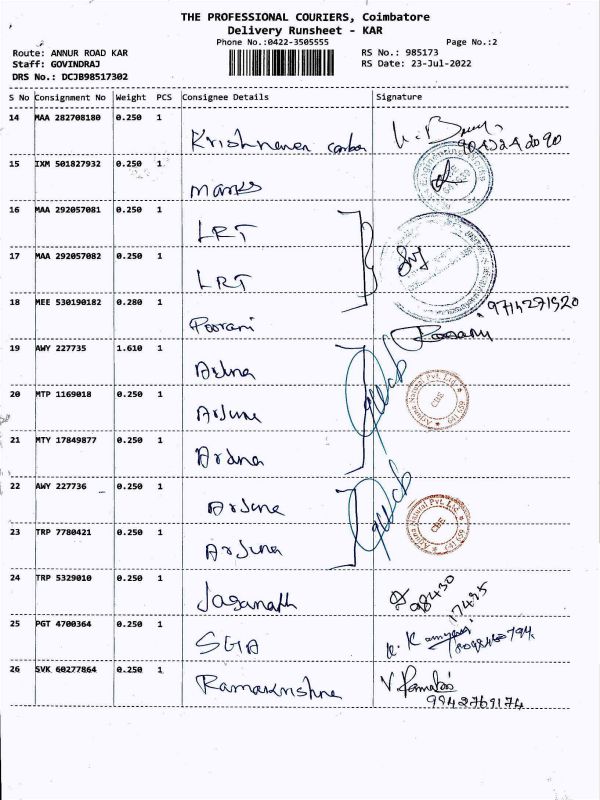 THE PROFESSIONAL COURIERS, Coimbatore
Delivery Runsheet - KAR
Phone No.:0422-3505555 Page No.:2
Route: ANNUR ROAD KAR RS No.: 985173
Staff: GOVINDRAJ RS Date: 23-Jul-2022
DRS No.: DCJB98517302
S No Consignment No Weight PCS Consignee Details Signature
14 MAA 282708180 0.250 1
Krishnaveni carbon
15 IXM 501827932 0.250 1
marks
16 MAA 292057081 0.250 1
LRT
17 MAA 292057082 0.250 1
LRT
18 MEE 530190182 0.280 1
Poorani 9714271520
Poorani
19 AWY 227735 1.610 1
Arjuna
20 MTP 1169018 0.250 1
Arjuna
Arjuna Natural Pvt. Ltd. CBE
21 MTY 17849877 0.250 1
Arjuna
22 AWY 227736 0.250 1
Arjuna
Arjuna Natural Pvt. Ltd. CBE 641 659
23 TRP 7780421 0.250 1
Arjuna
24 TRP 5329010 0.250 1
Jaganath 98430
17495
25 PGT 4700364 0.250 1
SGA
26 SVK 60277864 0.250 1
Ramakrishna
9942769174